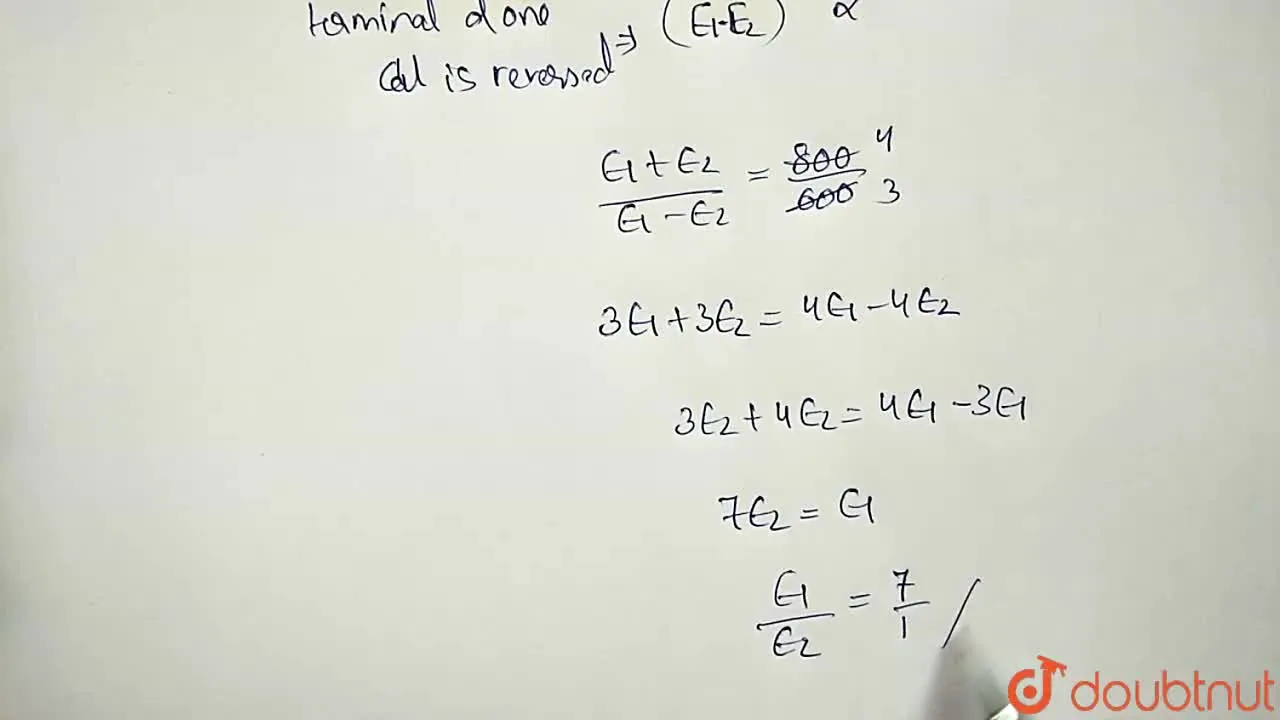 terminal of one (E1-E2) α
Cell is reversed ⇒
E1 + E2 / E1 - E2 = 800 / 600 4 / 3
3E1 + 3E2 = 4E1 - 4E2
3E2 + 4E2 = 4E1 - 3E1
7E2 = E1
E1 / E2 = 7 / 1 /
doubtnut